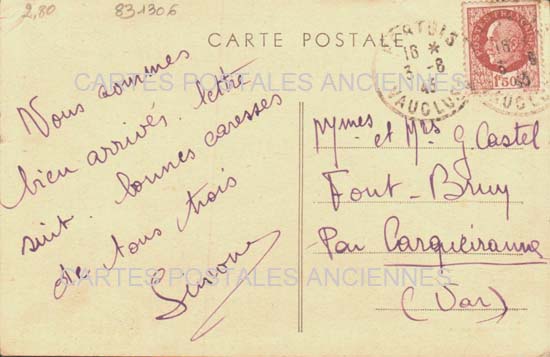 2,80
831306
CARTE POSTALE
PERTUIS
16 *
3 - 8
43
VAUCLUSE
POSTES FRANÇAISES
1F50
CARTES POSTALES ANCIENNES
Nous sommes
bien arrivés. lettre
suit. bonnes caresses
de tous trois
Simone
et Mrs G. Castel
Font-Brun
Par Carqueiranne
(Var)
CARTES POSTALES ANCIENNES